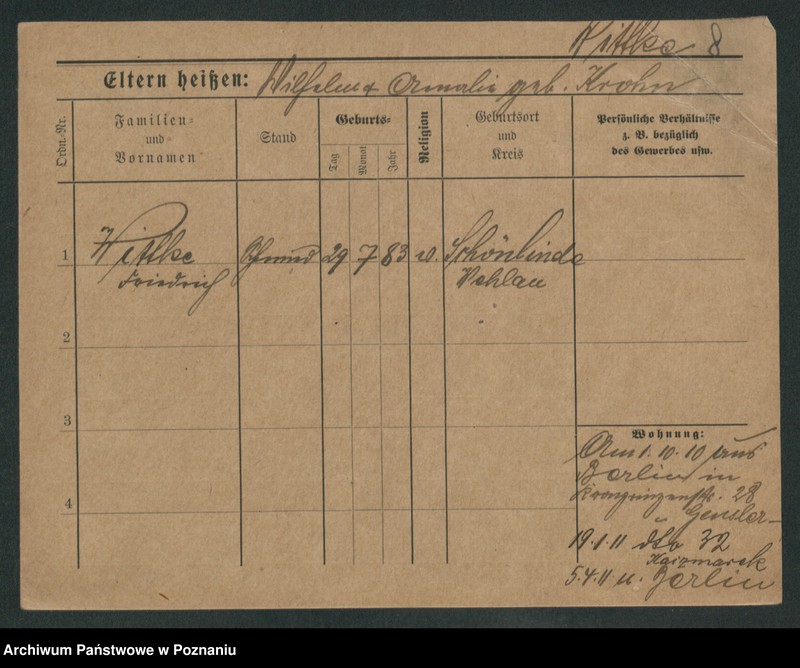 Wittke 8
Eltern heißen: Wilhelm & Amalie geb. Krohn
Ordn.-Nr.
Familien-
und
Vornamen
Stand
Geburts-
Tag
Monat
Jahr
Religion
Geburtsort
und
Kreis
Persönliche Verhältnisse
z. B. bezüglich
des Gewerbes usw.
1 Wittke 29 7 83 Schönlinde
Friedrich Wehlau
2
3
4
Wohnung:
Am 1.10.10 aus
Berlin in
Kronprinzenstr. 28
Gensler
19.1.11 dto 32
Kaizmarek
5.4.11 n. Berlin
Archiwum Państwowe w Poznaniu